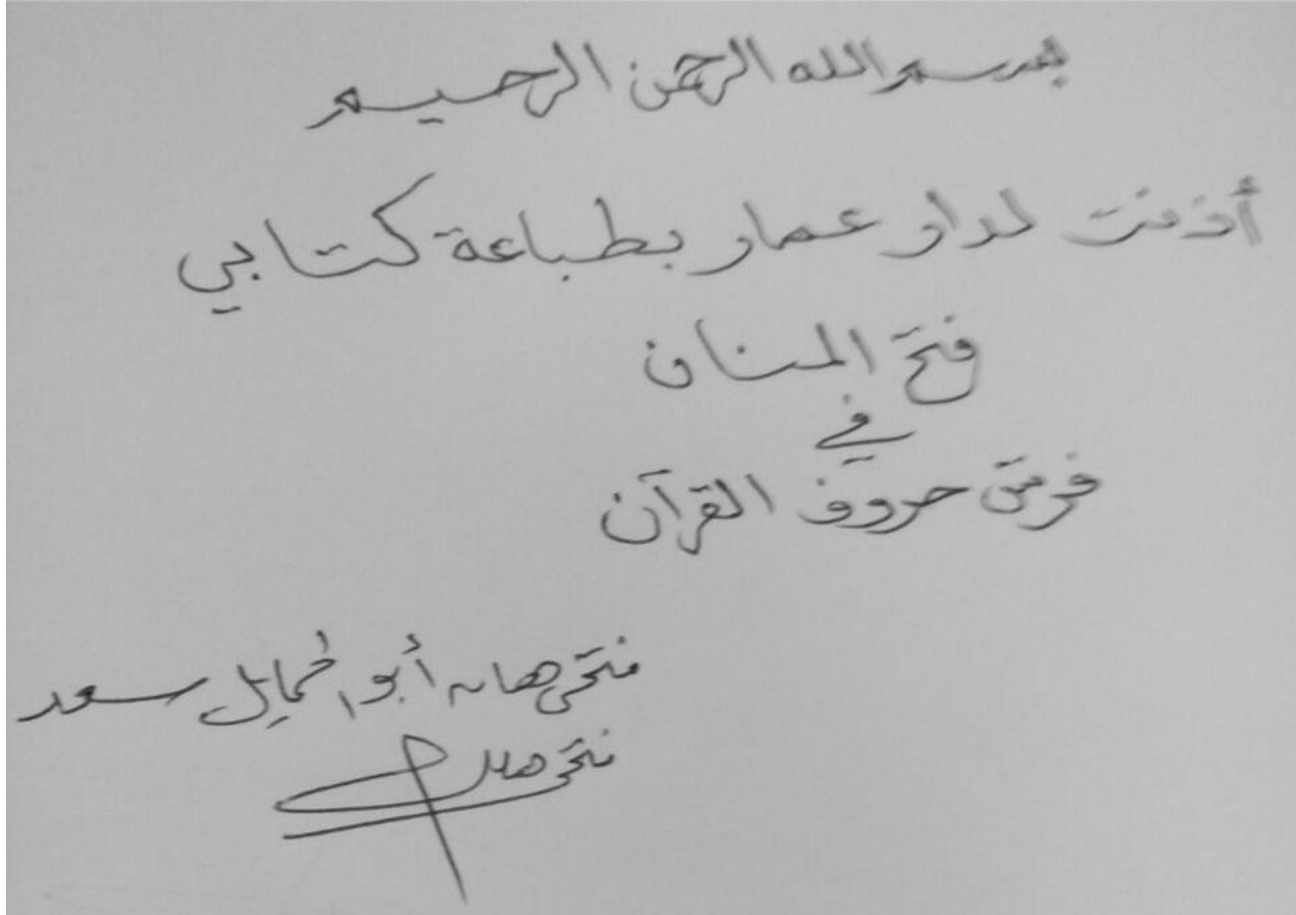 بسم الله الرحمن الرحيم
أذنت لدار عمار بطباعة كتابي
فتح المنان
في
فرش حروف القرآن
فتحي هاني أبو الخمايل سعد
فتحي هاني